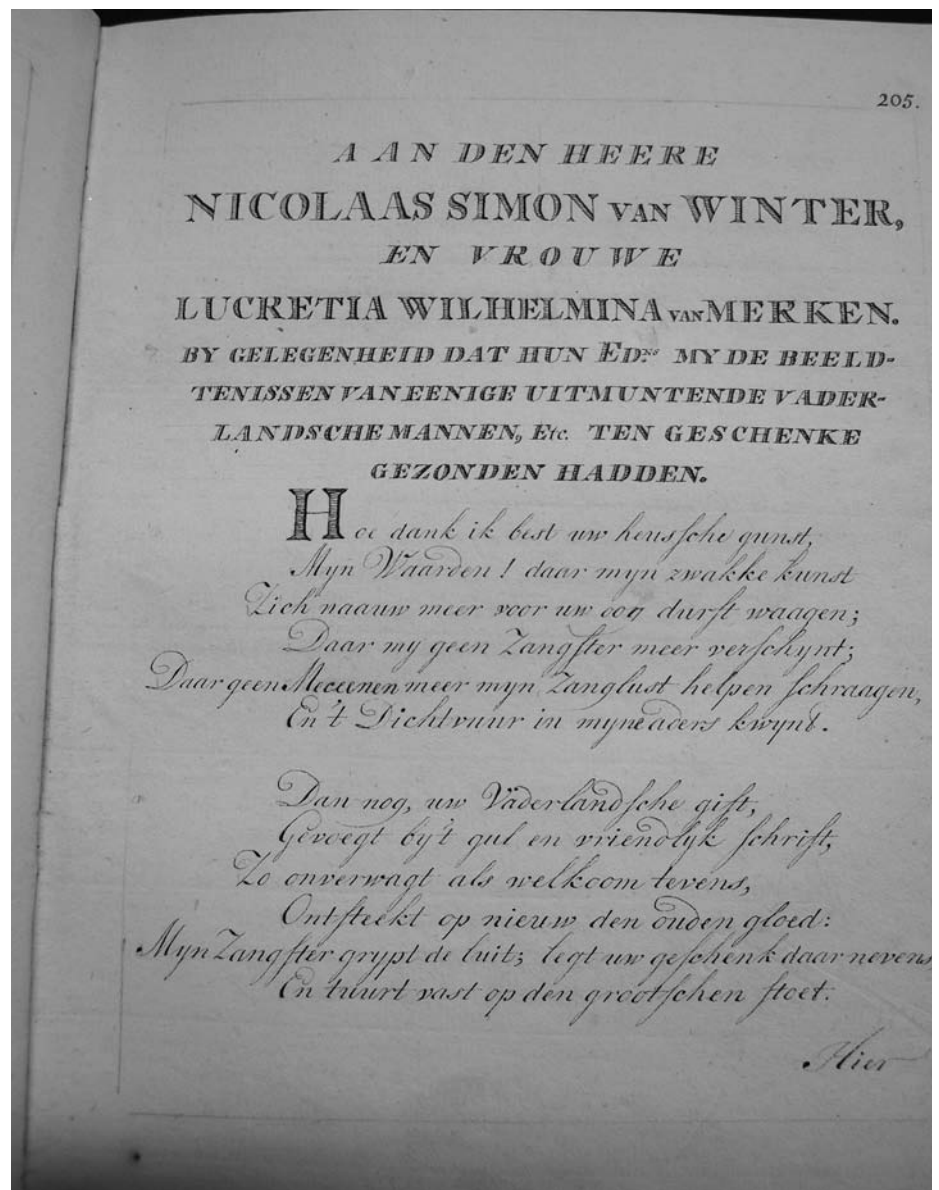 205.
AAN DEN HEERE
NICOLAAS SIMON VAN WINTER,
EN VROUWE
LUCRETIA WILHELMINA VAN MERKEN.
BY GELEGENHEID DAT HUN Ed.ns MY DE BEELD-
TENISSEN VAN EENIGE UITMUNTENDE VADER-
LANDSCHE MANNEN, Etc. TEN GESCHENKE
GEZONDEN HADDEN.
Hoe dank ik best uw heussche gunst,
Myn Waarden! daar myn zwakke kunst
Zich naauw meer voor uw oog durft waagen;
Daar my geen Zangster meer verschynt;
Daar geen Meceenen meer myn Zanglust helpen schraagen,
En 't Dichtvuur in myne aders kwynt.
Dan nog, uw Väderländsche gift,
Gevoegt by't gul en vriendlyk schrift,
Zo onverwagt als welkoom tevens,
Ontsteekt op nieuw den ouden gloed:
Myn Zangster grypt de luit; legt uw geschenk daar nevens,
En tuurt vast op den grootschen stoet.
Hier